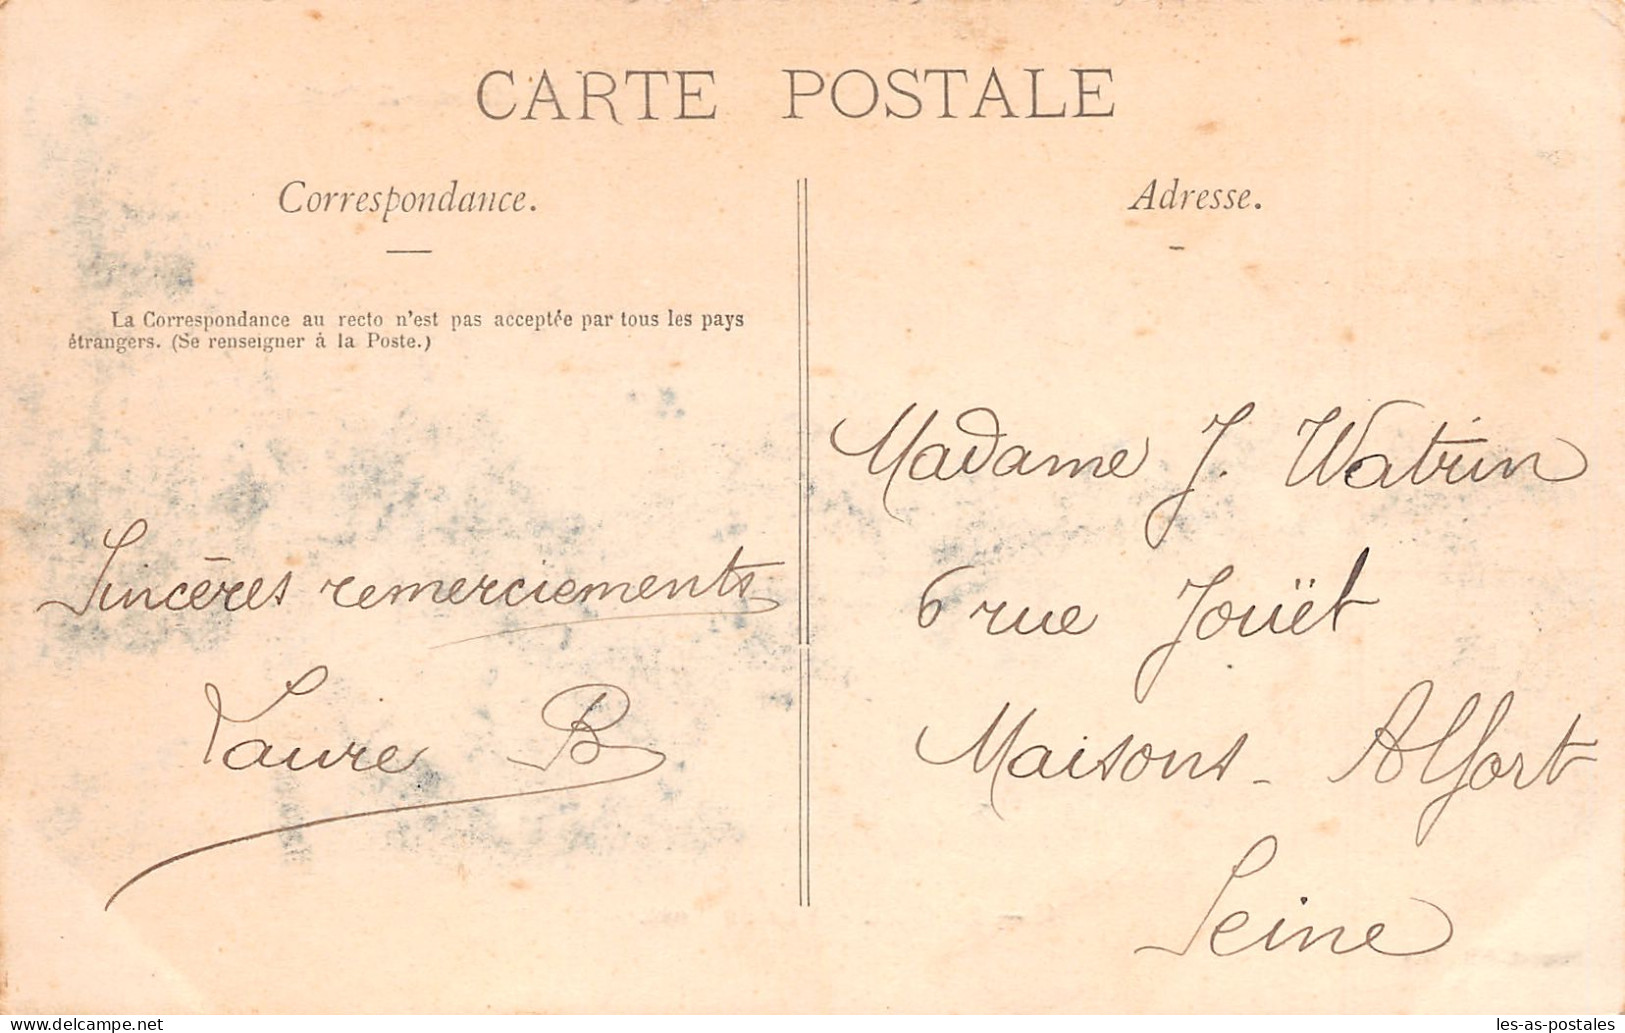 CARTE POSTALE
Correspondance.
La Correspondance au recto n'est pas acceptée par tous les pays
étrangers. (Se renseigner à la Poste.)
Sincères remerciements
Laure B
Adresse.
Madame J. Watrin
6 rue Jouët
Maisons-Alfort
Seine
delcampe.net
les-as-postales